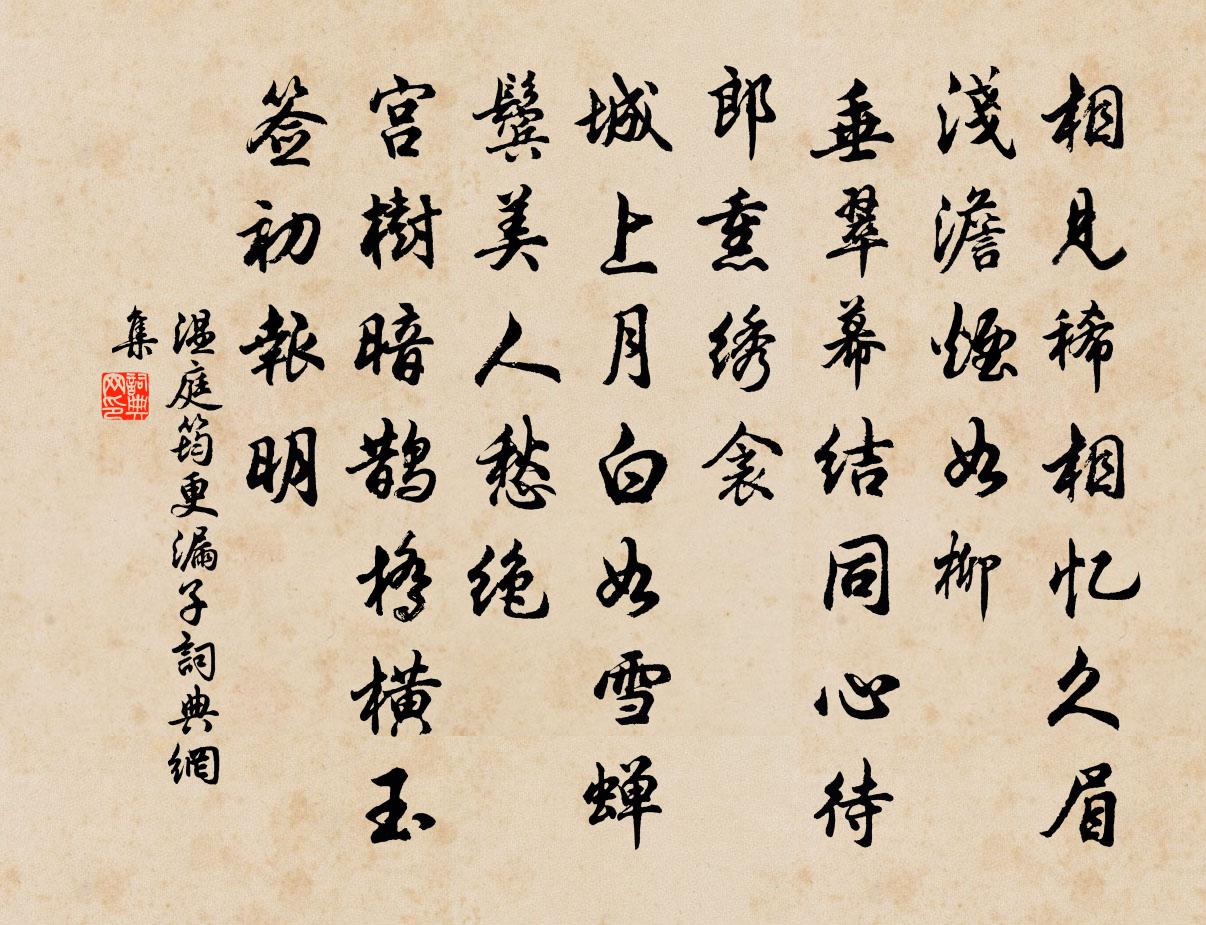 相見稀相忆久眉
淺澹煙如柳
垂翠幕结同心待
郎熏绣衾
城上月白如雪蝉
鬓美人愁绝
宫樹暗鹊橋橫玉
签初報明
温庭筠更漏子詞典網
集
詞典
网印